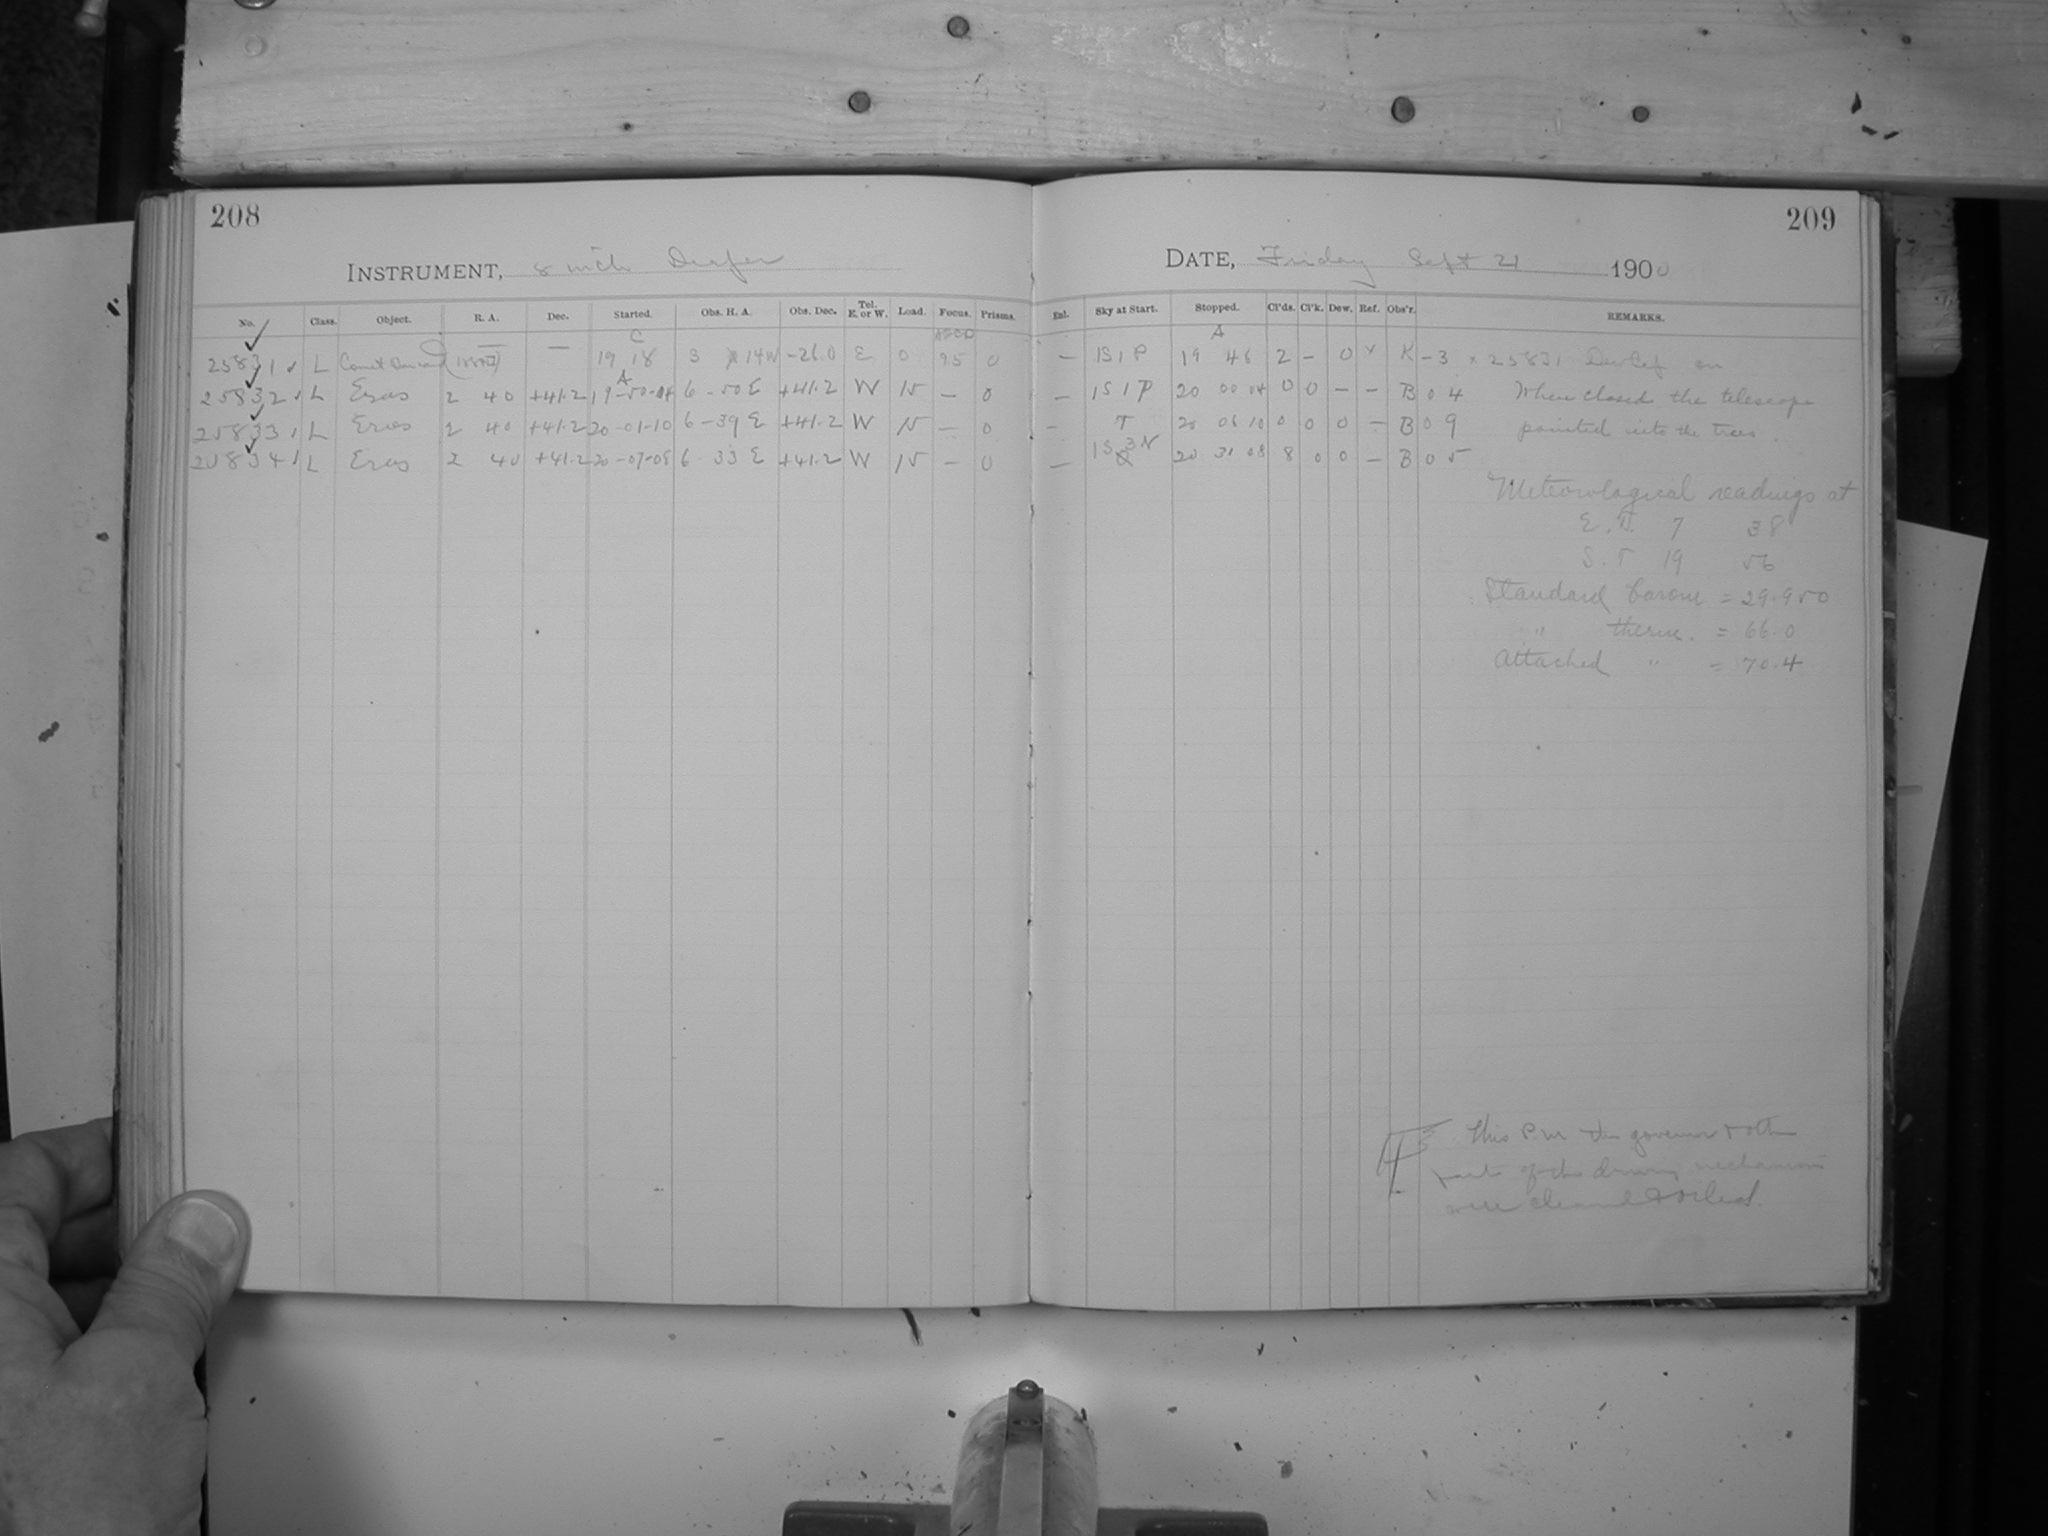 208
209
INSTRUMENT, 8 inch Draper
DATE, Friday Sept 21 1900
No. Class. Object. R. A. Dec. Started. Obs. H. A. Obs. Dec. Tel. E. or W. Load. Focus. Prisms. Enl. Sky at Start. Stopped. Cl'ds. Cl'k. Dew. Ref. Obs'r. REMARKS.
C A
25831 L Comet — — 19 18 3 14 W -26.0 E 0 95 0 — 1S1P 19 46 2 - 0 x K -3 x 25831 Dewcap on
A
25832 L Eros 2 40 +41.2 19-50-04 6-50 E +41.2 W 15 — 0 — 1S1P 20 00 04 0 0 — — B 0 4 When closed the telescope
25833 L Eros 2 40 +41.2 20-01-10 6-39 E +41.2 W 15 — 0 — T 20 06 10 0 0 0 — B 0 9 pointed into the trees.
25834 L Eros 2 40 +41.2 20-07-08 6 33 E +41.2 W 15 — 0 — 1S 3N 20 31 08 8 0 0 — B 0 5
Meteorological readings at
E.T. 7 38
S.T 19 56
Standard barom = 29.950
" therm. = 66.0
Attached " = 70.4
This P.M the governor & other
parts of the driving mechanism
were cleaned & oiled.